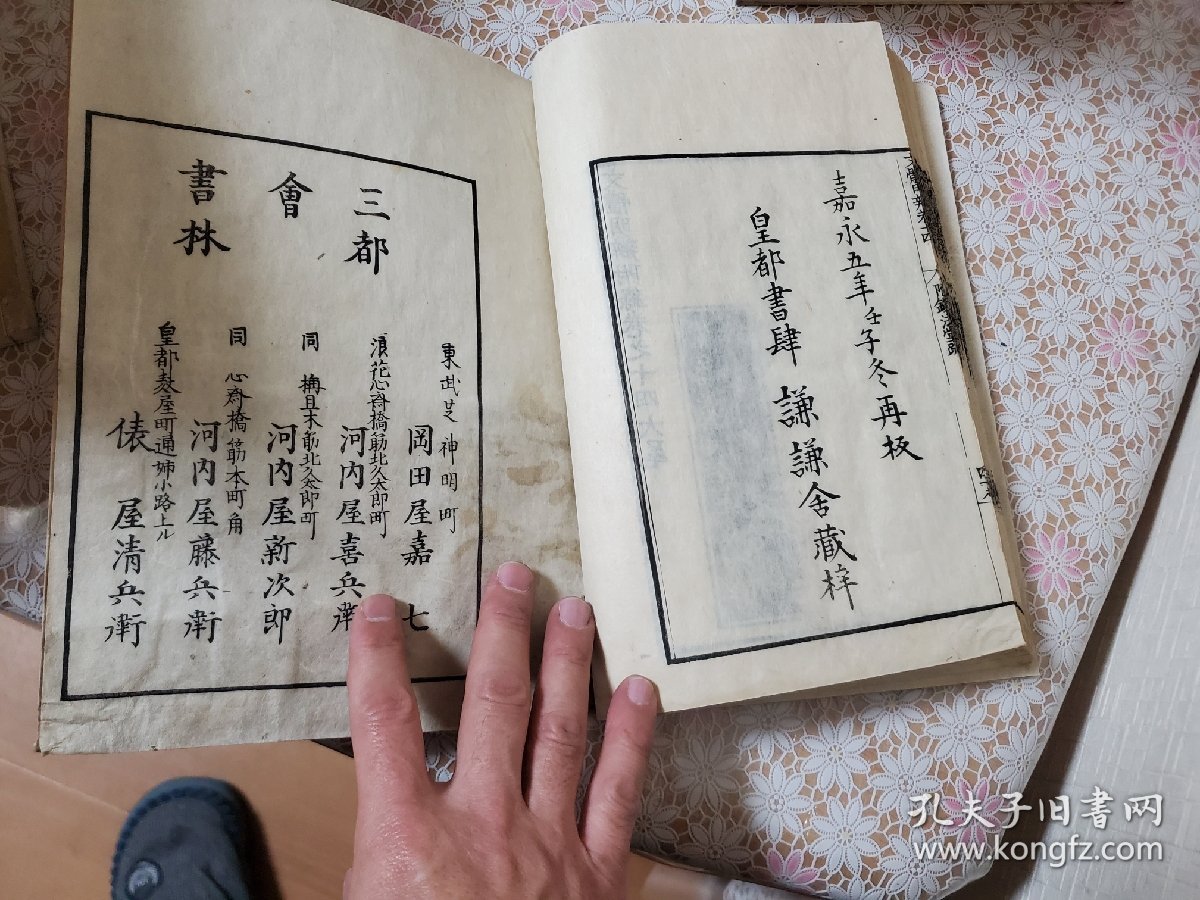 嘉永五年壬子冬再板
皇都書肆 謙謙舍藏梓
三都
會
書林
東武芝神明町
岡田屋嘉七
浪花心齋橋筋北久太郎町
河内屋喜兵衛
同 梅且木筋北久太郎町
河内屋新次郎
同 心齋橋筋本町角
河内屋藤兵衛
皇都麩屋町通姉小路上ル
俵屋清兵衛
孔夫子旧書网
www.kongfz.com